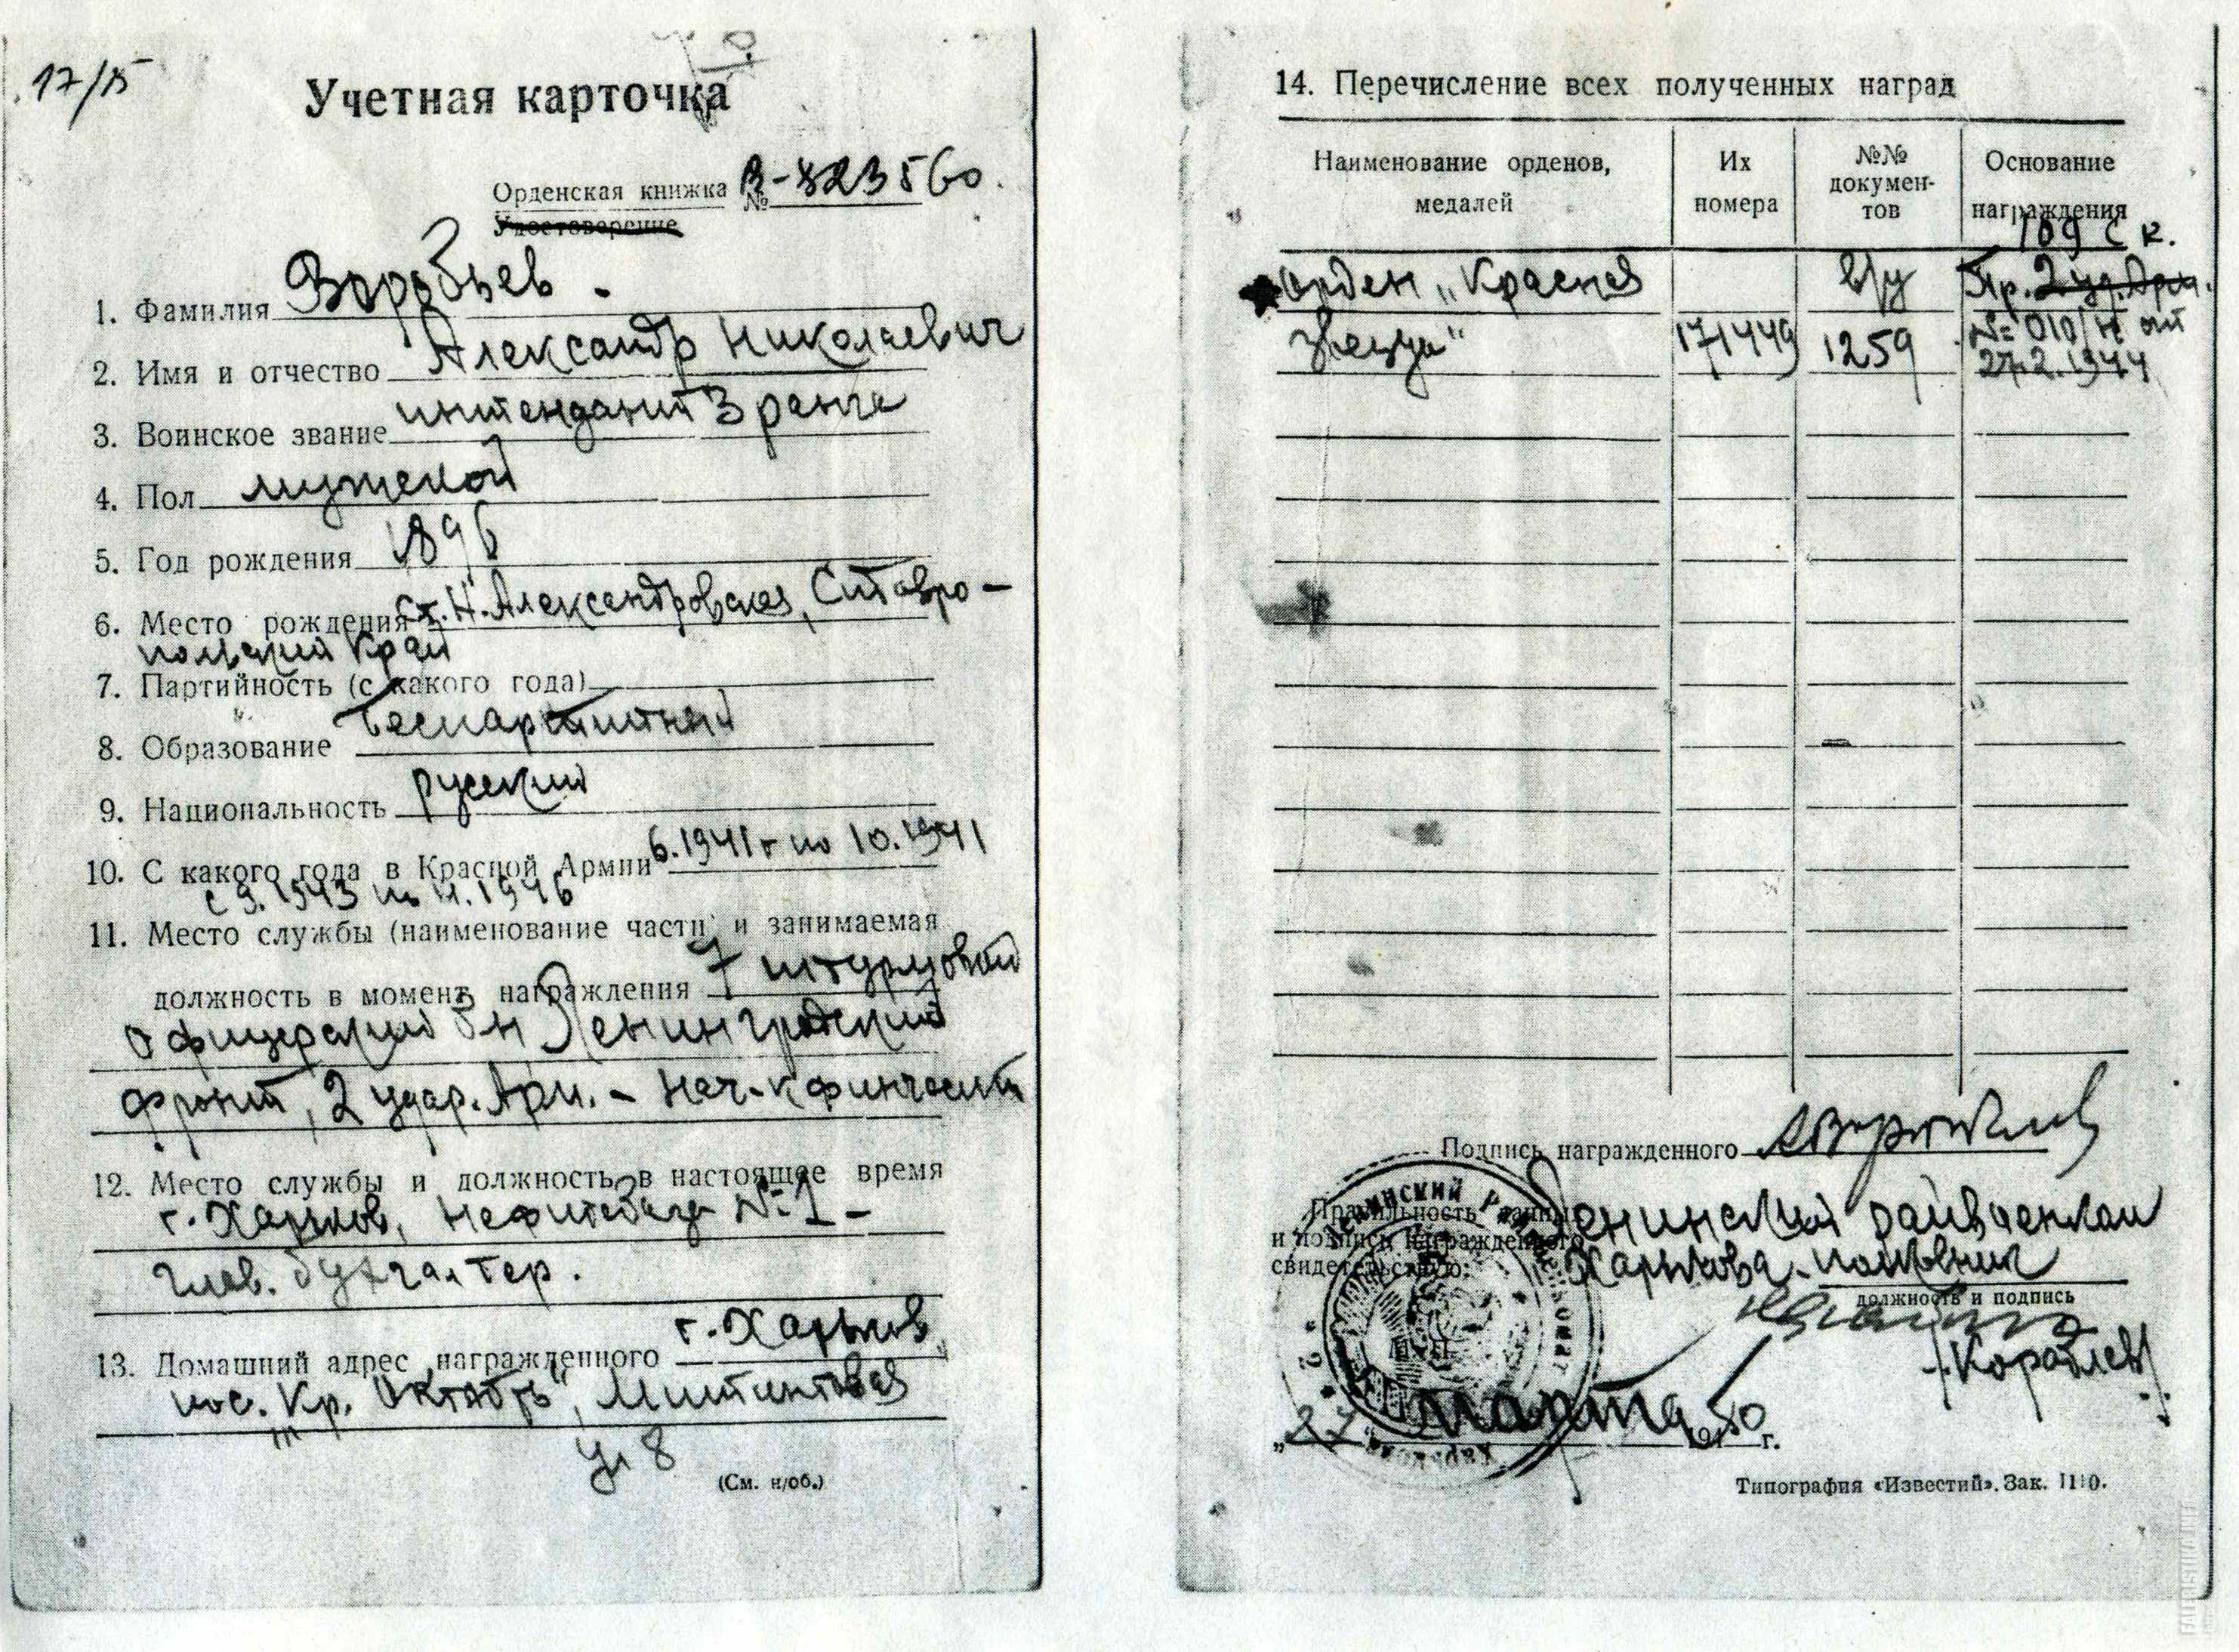 17/15
Учетная карточка
Орденская книжка № В-823560.
Удостоверение
1. Фамилия Воробьев.
2. Имя и отчество Александр Николаевич
3. Воинское звание интендант 3 ранга
4. Пол мужской
5. Год рождения 1896
6. Место рождения ст. Н. Александровская, Ставро-
польский край
7. Партийность (с какого года)
беспартийный
8. Образование
9. Национальность русский
10. С какого года в Красной Армии 6.1941 г по 10.1941
с 9.1943 по 4.1946
11. Место службы (наименование части и занимаемая
должность в момент награждения 7 штурмовой
офицерский б-н Ленинградский
фронт, 2 удар. Арм. - нач-к финчасти
12. Место службы и должность в настоящее время
г. Харьков, Нефтебаза № 1 -
глав. бухгалтер.
13. Домашний адрес награжденного г. Харьков
пос. Кр. Октябрь",
8
(См. н/об.)
14. Перечисление всех полученных наград
Наименование орденов, медалей
Их номера
№№ докумен-тов
Основание награждения
109 с к.
Орден „Красная в/у Пр. 2 уд. Арм.
Звезда" 171449 1259 № 010/н от
27.2.1944
Подпись награжденного
Правильность данных
и подписи награжденного
свидетельствую:
Ленинский райвоенком
Харькова - полковник
должность и подпись
/Кораблев/
„27" марта 1950 г.
Типография «Известий». Зак. 1110.
FALERISTIKA.INFO